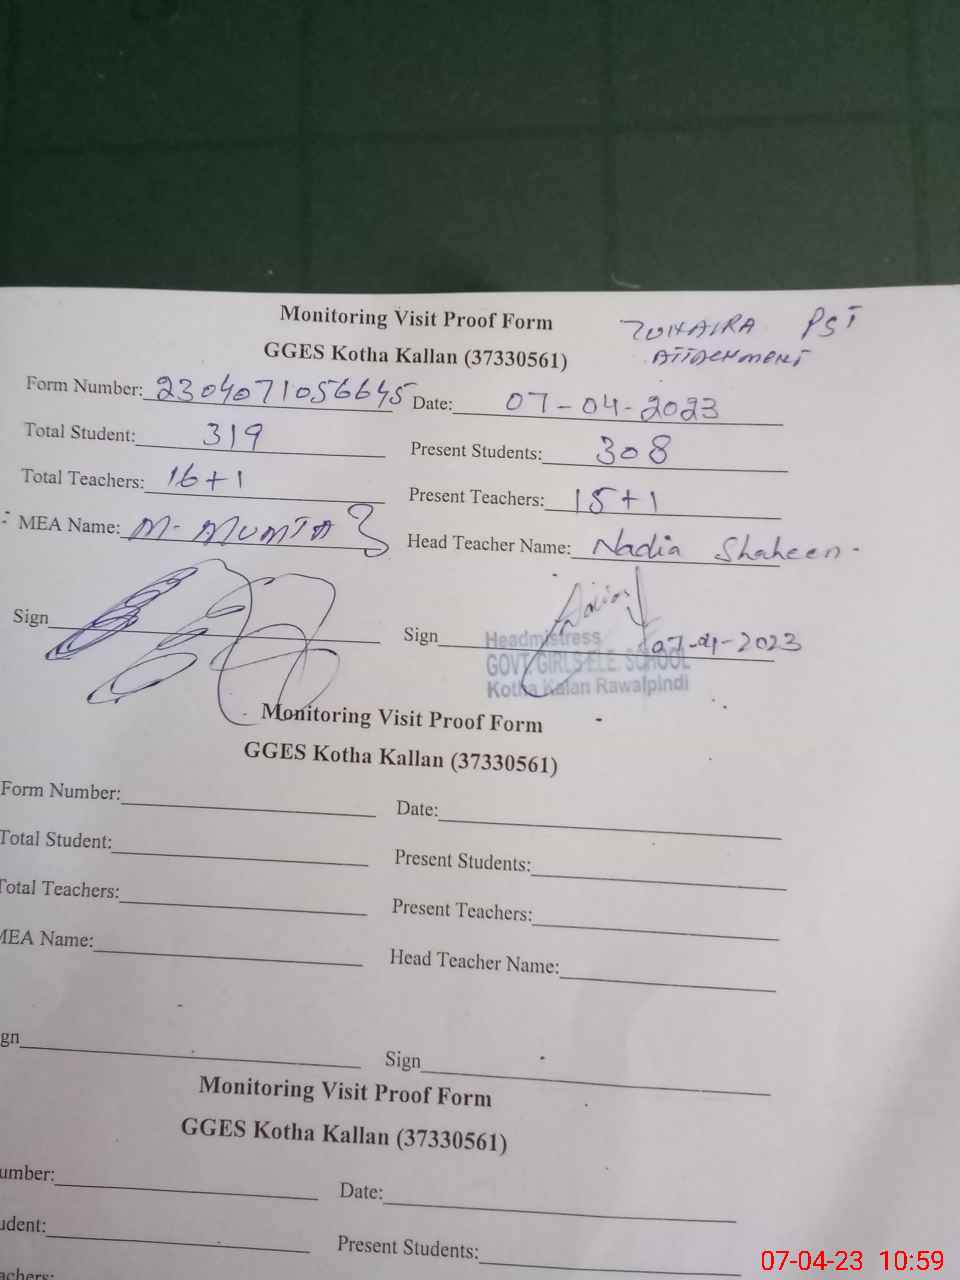 Monitoring Visit Proof Form
ZUHAIRA PST
GGES Kotha Kallan (37330561)
ATTACHMENT
Form Number: 2304071056645 Date: 07-04-2023
Total Student: 319 Present Students: 308
Total Teachers: 16+1 Present Teachers: 15+1
MEA Name: M- MUMTAZ Head Teacher Name: Nadia Shaheen-
Sign Sign 07-04-2023
Headmistress
GOVT GIRLS ELE. SCHOOL
Kotha Kalan Rawalpindi
Monitoring Visit Proof Form
GGES Kotha Kallan (37330561)
Form Number: Date:
Total Student: Present Students:
Total Teachers: Present Teachers:
MEA Name: Head Teacher Name:
gn Sign
Monitoring Visit Proof Form
GGES Kotha Kallan (37330561)
umber: Date:
udent: Present Students:
achers:
07-04-23 10:59